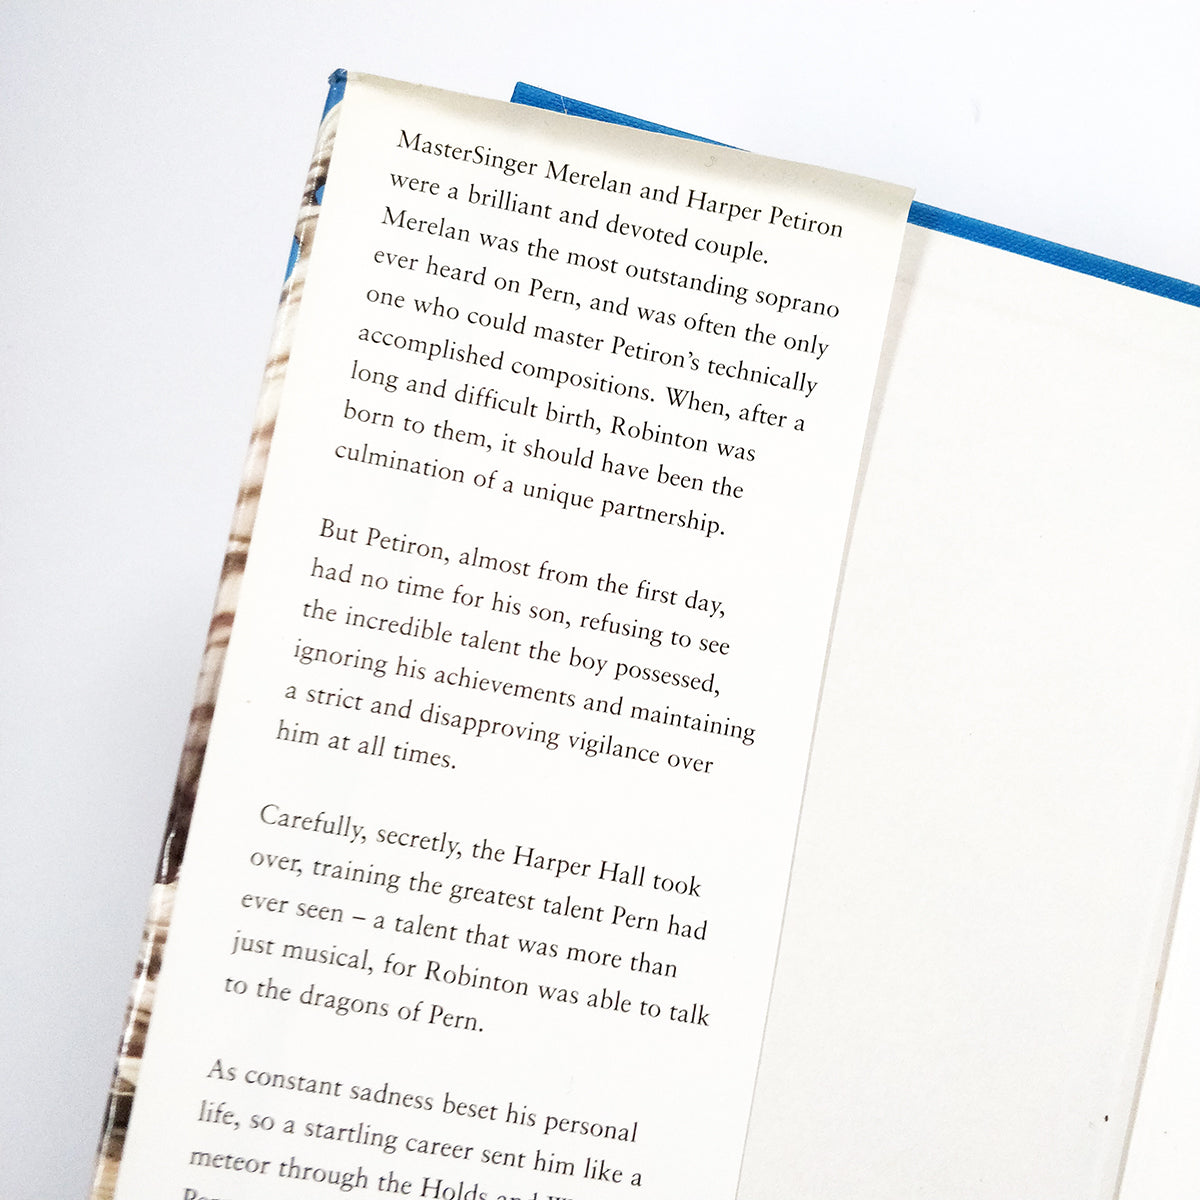 MasterSinger Merelan and Harper Petiron
were a brilliant and devoted couple.
Merelan was the most outstanding soprano
ever heard on Pern, and was often the only
one who could master Petiron's technically
accomplished compositions. When, after a
long and difficult birth, Robinton was
born to them, it should have been the
culmination of a unique partnership.
But Petiron, almost from the first day,
had no time for his son, refusing to see
the incredible talent the boy possessed,
ignoring his achievements and maintaining
a strict and disapproving vigilance over
him at all times.
Carefully, secretly, the Harper Hall took
over, training the greatest talent Pern had
ever seen – a talent that was more than
just musical, for Robinton was able to talk
to the dragons of Pern.
As constant sadness beset his personal
life, so a startling career sent him like a
meteor through the Holds and